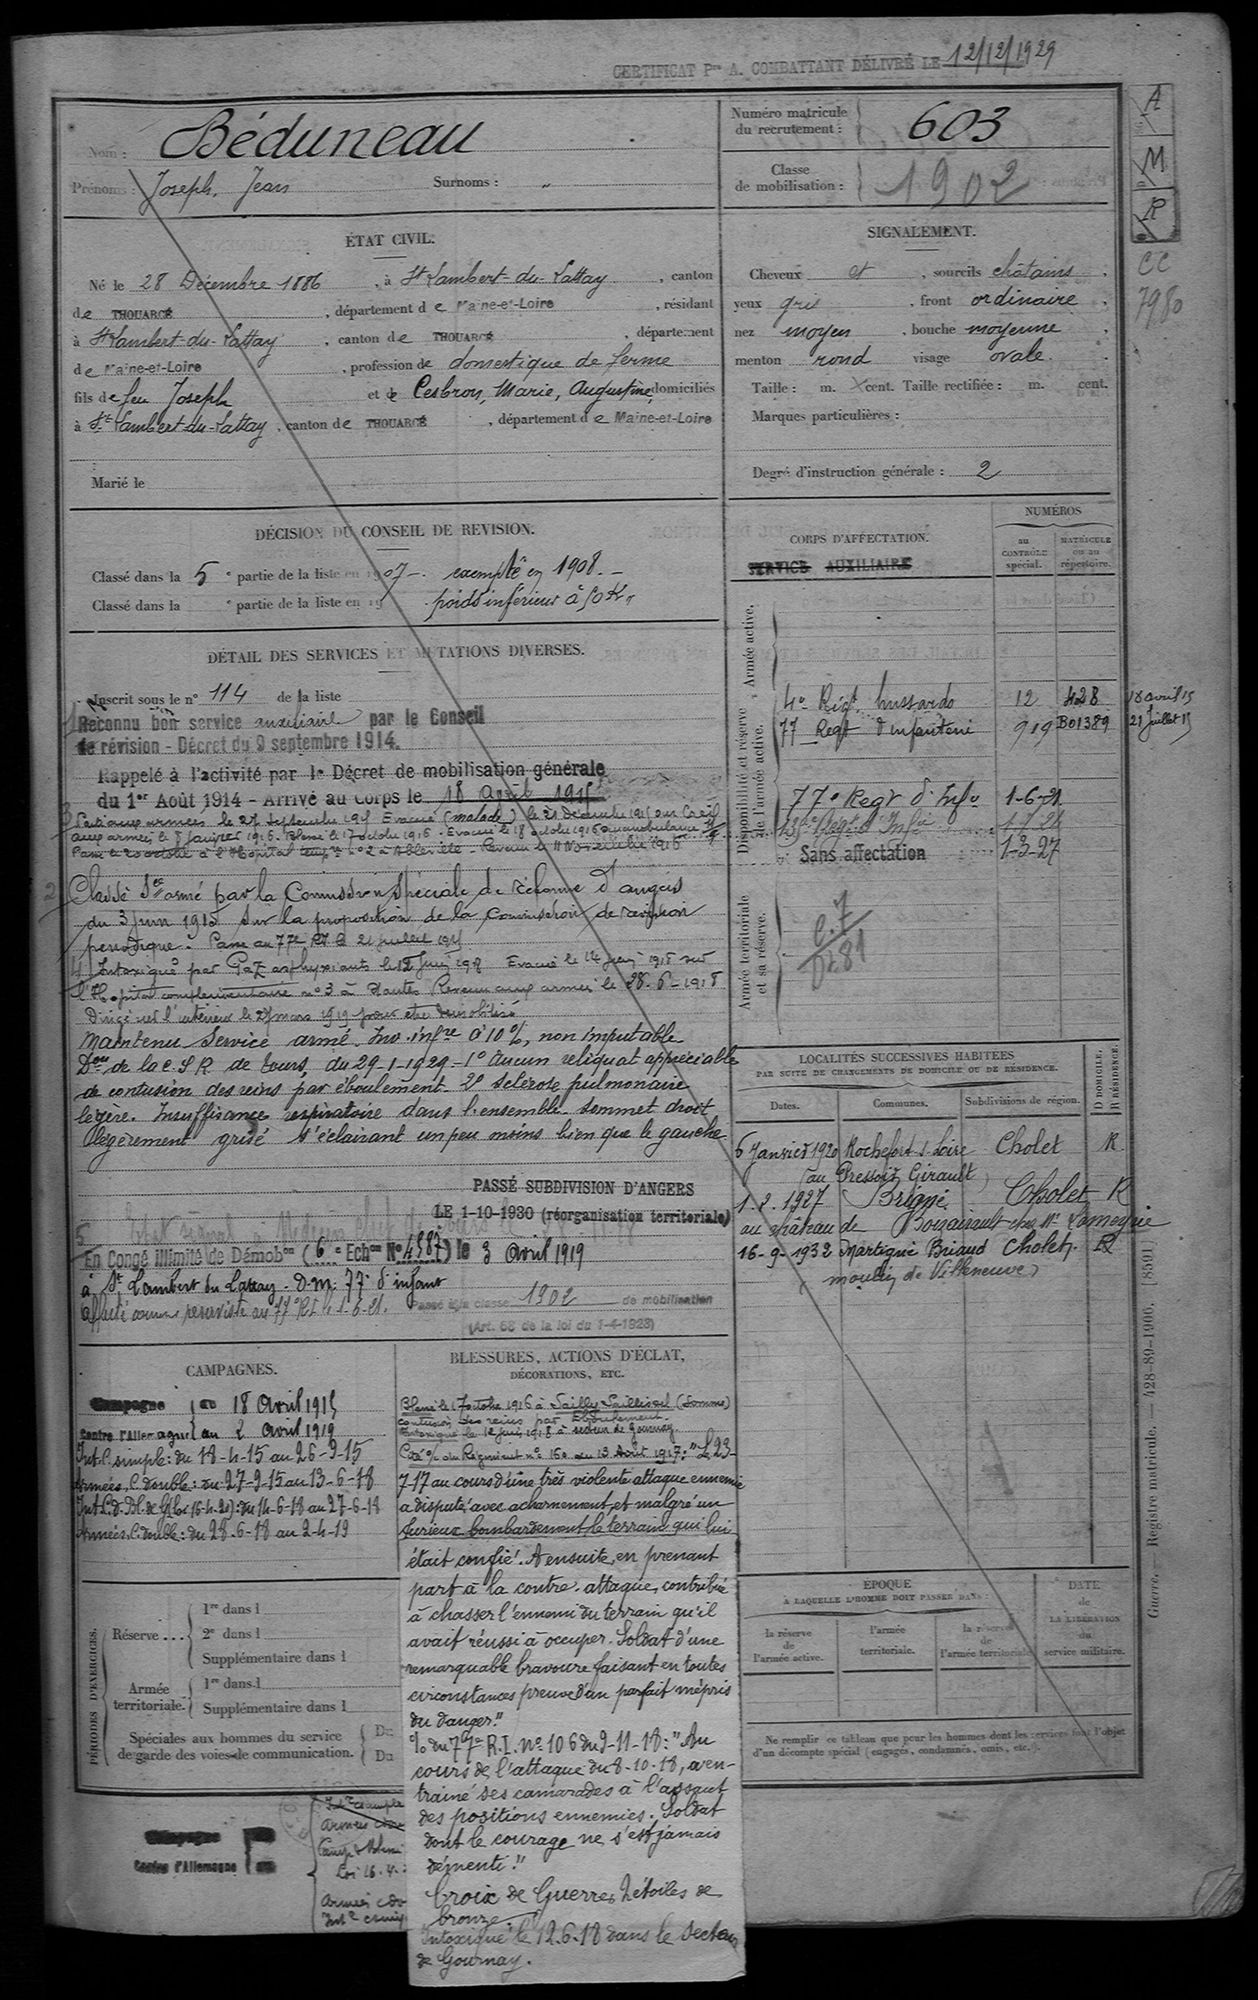 CERTIFICAT Pre A. COMBATTANT DÉLIVRÉ LE 12/12/1929
Nom : Béduneau
Prénoms : Joseph, Jean Surnoms : "
Numéro matricule du recrutement : 603
Classe de mobilisation : 1902
A
M
R
CC
7980
ÉTAT CIVIL.
Né le 28 Décembre 1886, à St Lambert-du-Lattay, canton
de THOUARCÉ, département de Maine-et-Loire, résidant
à St Lambert-du-Lattay, canton de THOUARCÉ, département
de Maine-et-Loire, profession de domestique de ferme
fils de feu Joseph et de Cesbron, Marie, Augustine, domiciliés
à St Lambert-du-Lattay, canton de THOUARCÉ, département de Maine-et-Loire
Marié le
SIGNALEMENT.
Cheveux et, sourcils châtains,
yeux gris, front ordinaire,
nez moyen, bouche moyenne,
menton rond visage ovale.
Taille : m. cent. Taille rectifiée : m. cent.
Marques particulières :
Degré d'instruction générale : 2
DÉCISION DU CONSEIL DE REVISION.
Classé dans la 5e partie de la liste en 1907 - exempté en 1908. -
Classé dans la e partie de la liste en 19 poids inférieur à 50 K"
DÉTAIL DES SERVICES ET MUTATIONS DIVERSES.
Inscrit sous le n° 114 de la liste
Reconnu bon service auxiliaire par le Conseil
de révision - Décret du 9 septembre 1914.
Rappelé à l'activité par le Décret de mobilisation générale
du 1er Août 1914 - Arrivé au Corps le 18 avril 1915
3 Parti aux armées le 27 septembre 1915 Evacué (malade) le 21 Décembre 1915 sur Creil
aux armées le 8 janvier 1916. Blessé le 17 octobre 1916. Evacué le 18 octobre 1916 ambulance
Passé le 20 octobre à l'Hôpital temp. n° 2 à Abbeville. Revenu le 11 Novembre 1916
2 Classé Sce armé par la Commission Spéciale de réforme d'angers
du 3 juin 1915 sur la proposition de la Commission de révision
périodique. Passé au 77e RI le 21 juillet 1915
4 Intoxiqué par Gaz asphyxiants le 12 Juin 1918 Evacué le 14 juin 1918 sur
l'Hôpital complémentaire n° 3 à Nantes Revenu aux armées le 28-6-1918
Dirigé sur l'intérieur le 29 mars 1919 pour être démobilisé
Maintenu Service armé. Inv. infre à 10 %, non imputable
Don de la C.S.R de Tours, du 29-1-1929 - 1° Aucun reliquat appréciable
de contusion des reins par éboulement. 2° Sclérose pulmonaire
légère. Insuffisance respiratoire dans l'ensemble. Sommet droit
légèrement grisé s'éclairant un peu moins bien que le gauche
PASSÉ SUBDIVISION D'ANGERS
LE 1-10-1930 (réorganisation territoriale)
5
En Congé illimité de Démobon (6e Echon N° 4587) le 3 avril 1919
à St Lambert du Lattay. D.M. 77e d'infant
Affecté comme réserviste au 77e RI le 1-6-21. Passé à la classe 1902 de mobilisation
(Art. 58 de la loi du 1-4-1923)
CORPS D'AFFECTATION.
NUMÉROS
au CONTRÔLE spécial.
MATRICULE ou au répertoire.
SERVICE AUXILIAIRE
Disponibilité et réserve de l'armée active. Armée active.
4e Régt. hussards 12 428 18 avril 15
77 Regt d'infanterie 919 B01389 21 juillet 15
77e Regt d'Infie 1-6-21
Regt d'Infie 1-7-24
Sans affectation 1-3-27
Armée territoriale et sa réserve.
C.7
D281
LOCALITÉS SUCCESSIVES HABITÉES
PAR SUITE DE CHANGEMENTS DE DOMICILE OU DE RÉSIDENCE.
D DOMICILE, R RÉSIDENCE.
Dates. Communes. Subdivisions de région.
6 Janvier 1920 Rochefort s/ Loire Cholet R
(au Pressoir Girault)
1.2.1927 Brigné Cholet R
au château de
16-9-1932 Martigné Briand Cholet. R
(moulin de Villeneuve)
CAMPAGNES.
Campagne du 18 Avril 1915
Contre l'Allemagne au 2 avril 1919
Int. C. simple : du 18-4-15 au 26-9-15
Armées, C. double : du 27-9-15 au 13-6-18
Int. C. d. Bl. de G (loi 16-4-20) : du 14-6-18 au 27-6-18
Armées, C. double : du 28-6-18 au 2-4-19
BLESSURES, ACTIONS D'ÉCLAT,
DÉCORATIONS, ETC.
Blessé le 17 octobre 1916 à Sailly Saillisel (Somme)
contusion des reins par éboulement.
Intoxiqué le 12 juin 1918 à secteur de Gournay.
Cité o/ du Régiment n° 160 du 13 Août 1917 : "Le 23-
7-17 au cours d'une très violente attaque ennemie
a disputé avec acharnement et malgré un
furieux bombardement le terrain qui lui
était confié. A ensuite, en prenant
part à la contre-attaque, contribué
à chasser l'ennemi du terrain qu'il
avait réussi à occuper. Soldat d'une
remarquable bravoure faisant en toutes
circonstances preuve d'un parfait mépris
du danger."
o/o du 77e R.I. N° 106 du 9-11-18 : "Au
cours de l'attaque du 8-10-18, a en-
traîné ses camarades à l'assaut
des positions ennemies. Soldat
dont le courage ne s'est jamais
démenti."
Croix de Guerre, 2 étoiles de
bronze.
Intoxiqué le 12.6.18 dans le secteur
de Gournay.
PÉRIODES D'EXERCICES.
Réserve ... 1re dans l
2e dans l
Supplémentaire dans l
Armée territoriale. 1re dans l
Supplémentaire dans l
Spéciales aux hommes du service
de garde des voies de communication. Du
Du
Campagne
Contre l'Allemagne
ÉPOQUE
À LAQUELLE L'HOMME DOIT PASSER DANS :
la réserve de l'armée active.
l'armée territoriale.
la réserve de l'armée territoriale
DATE de LA LIBÉRATION du service militaire.
Ne remplir ce tableau que pour les hommes dont les services font l'objet
d'un décompte spécial (engagés, condamnés, omis, etc.).
Guerre. — Registre matricule. — 428-89-1906. [8591]